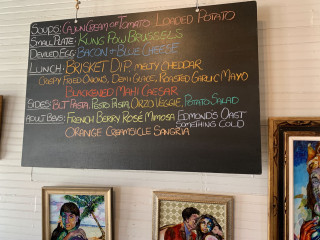 SOUPS: CAJUN CREAM OF TOMATO LOADED POTATO
SMALL PLATE: KUNG POW BRUSSELS
DEVILED EGG: BACON + BLUE CHEESE
LUNCH: BRISKET DIP MELTY CHEDDAR
CRISPY FRIED ONIONS, DEMI GLACE, ROASTED GARLIC MAYO
BLACKENED MAHI CAESAR
SIDES: BLT PASTA, PESTO PASTA, ORZO VEGGIE, POTATO SALAD
ADULT BEVS: FRENCH BERRY ROSÉ MIMOSA EDMONDS OAST
SOMETHING COLD
ORANGE CREAMSICLE SANGRIA